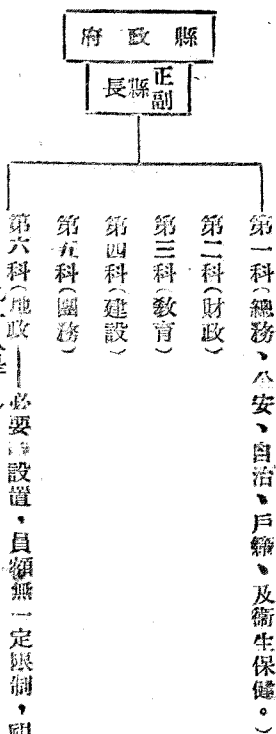 縣政府
正副縣長
第一科(總務、公安、自治、戶籍、及衞生保健。)
第二科(財政)
第三科(敎育)
第四科(建設)
第五科(團務)
第六科(地政——必要 設置,員額無一定限制,